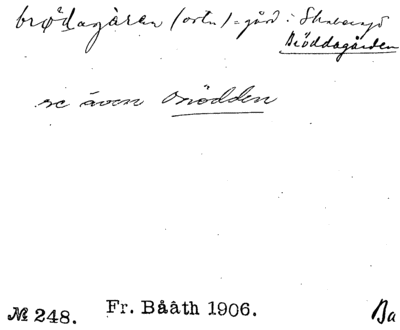 brødagåren (ortn.) = gård i
Bröddagården
se även Brödden
№ 248. Fr. Bååth 1906. Ba